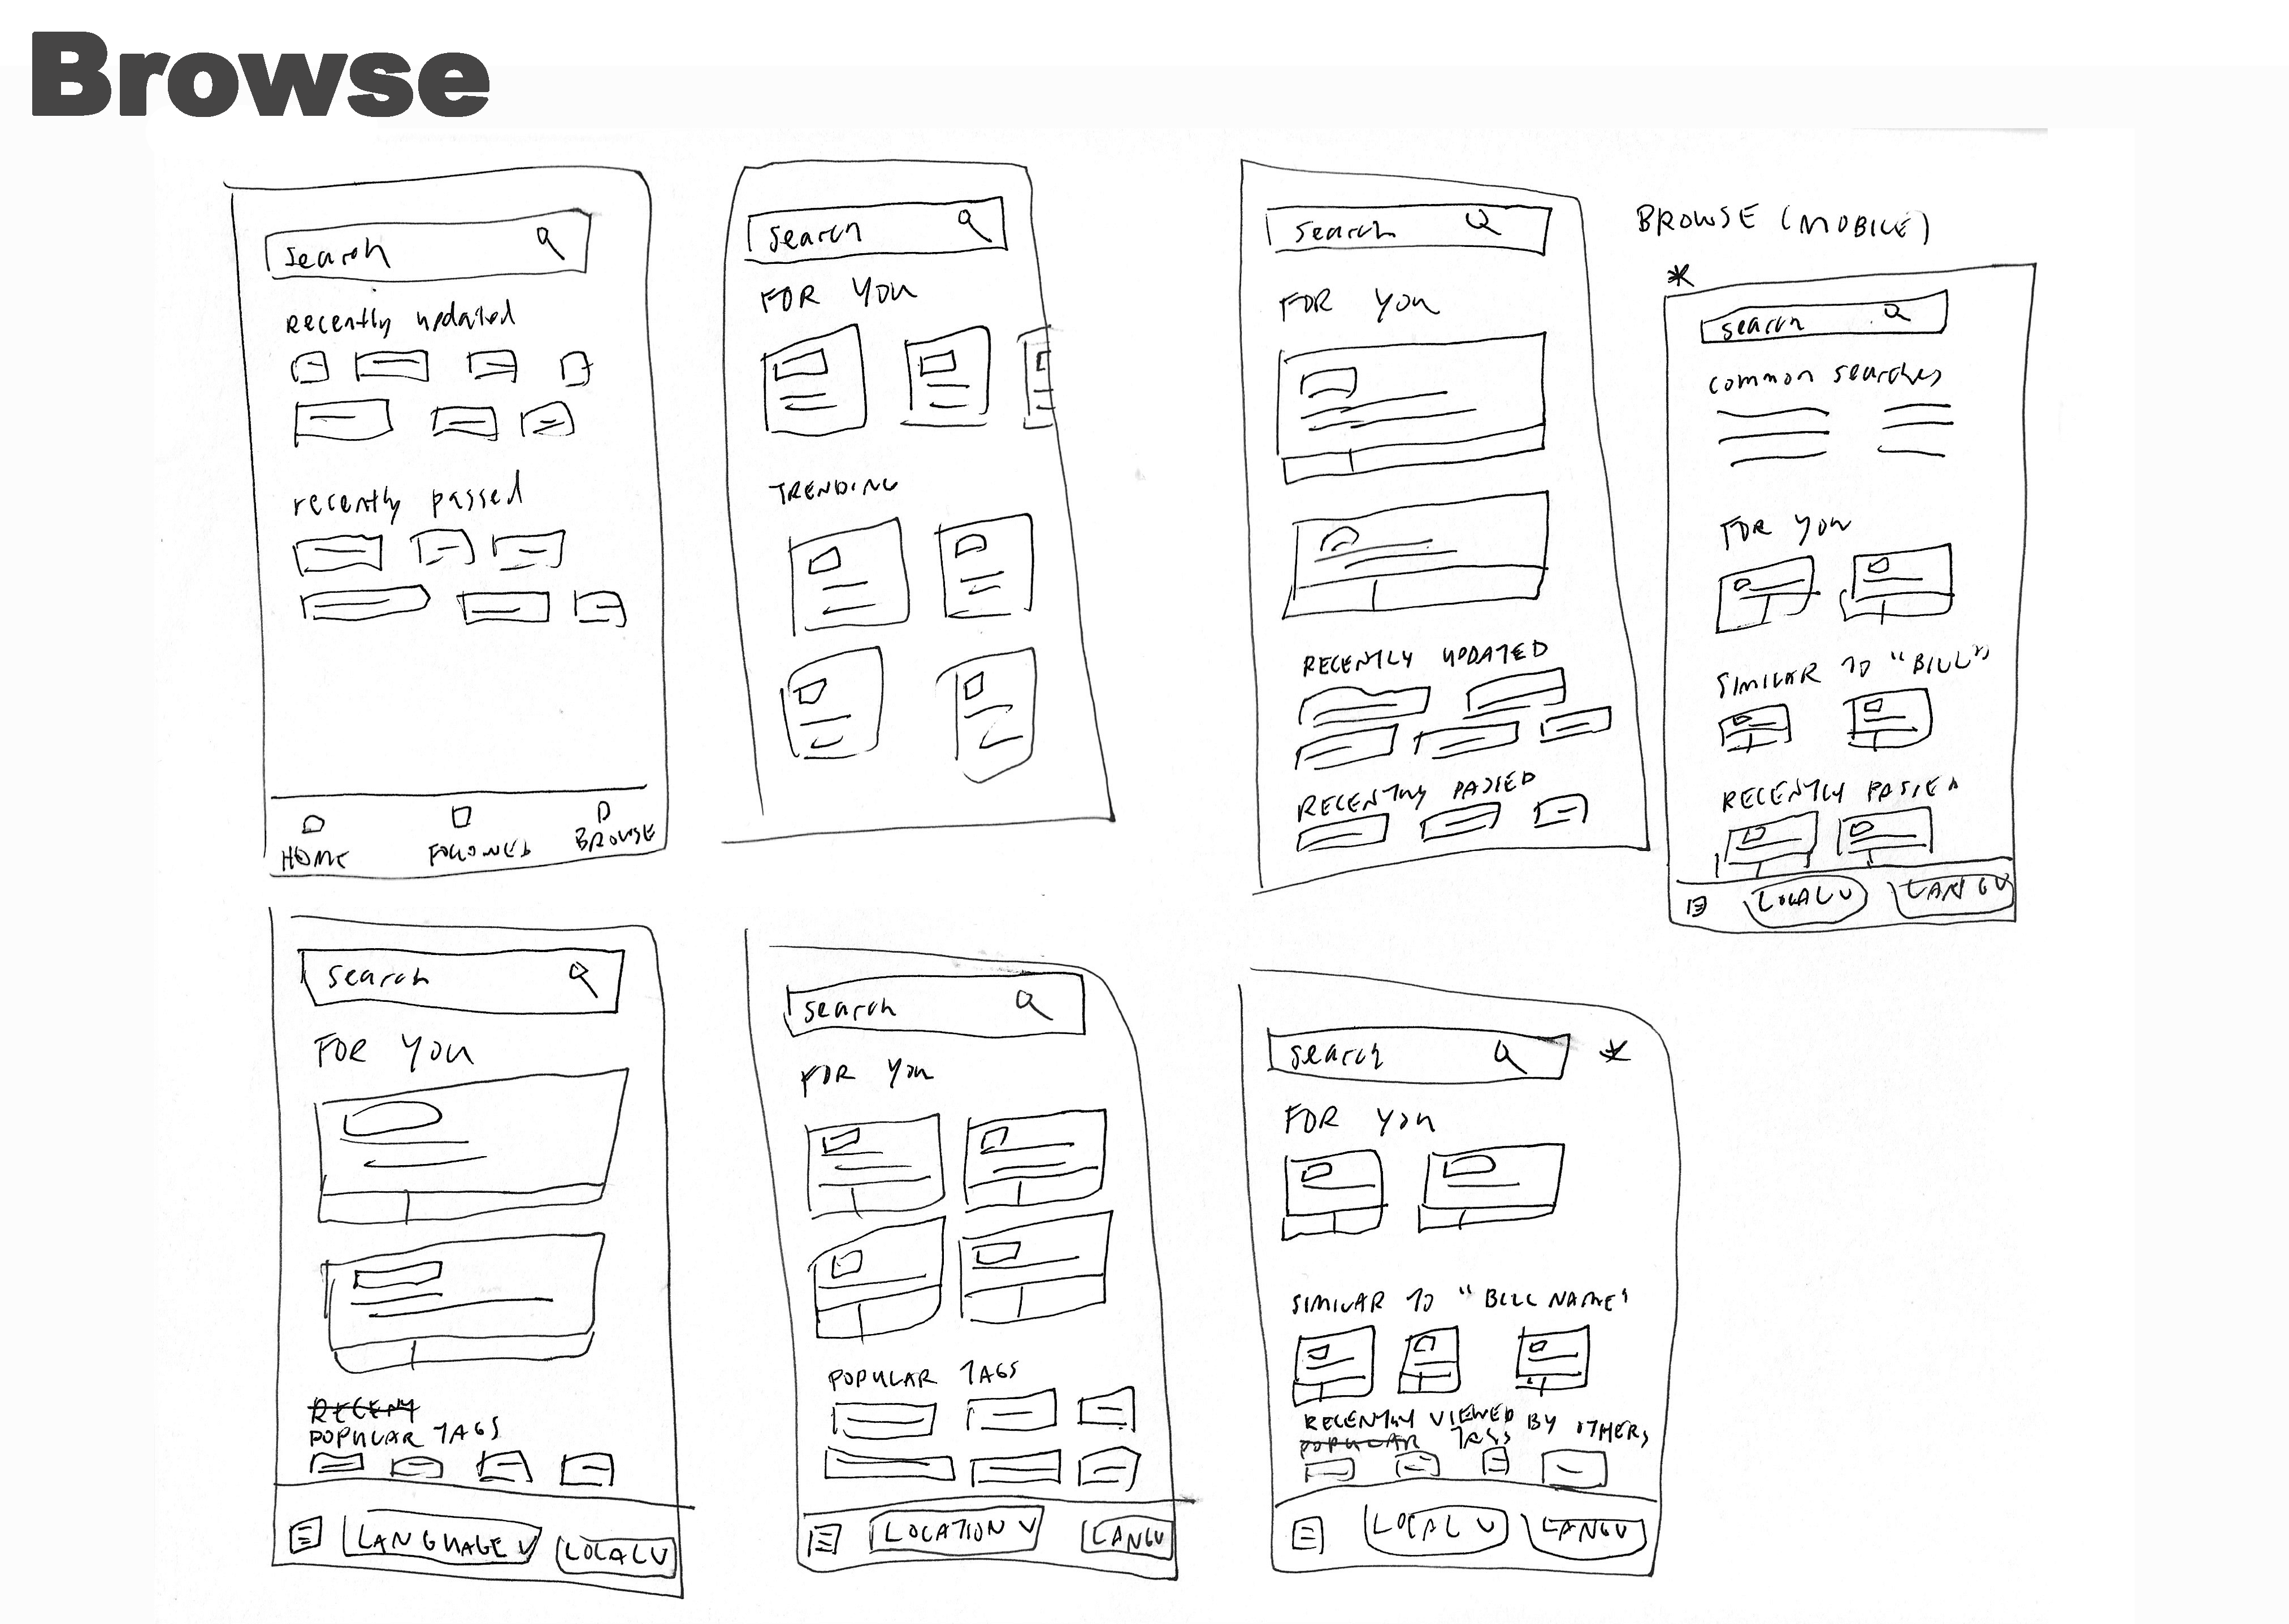 Browse
search
recently updated
recently passed
HOME
FOLLOWED
BROWSE
search
FOR YOU
TRENDING
search
FOR YOU
RECENTLY UPDATED
RECENTLY PASSED
BROWSE (MOBILE)
*
search
common searches
FOR YOU
SIMILAR TO "BILL"
RECENTLY PASSED
LOCAL V
LANG V
search
FOR YOU
RECENT
POPULAR TAGS
LANGUAGE V
LOCAL V
search
FOR YOU
POPULAR TAGS
LOCATION V
LANG V
search *
FOR YOU
SIMILAR TO "BILL NAME"
RECENTLY VIEWED BY OTHERS
POPULAR TAGS
LOCAL V
LANG V